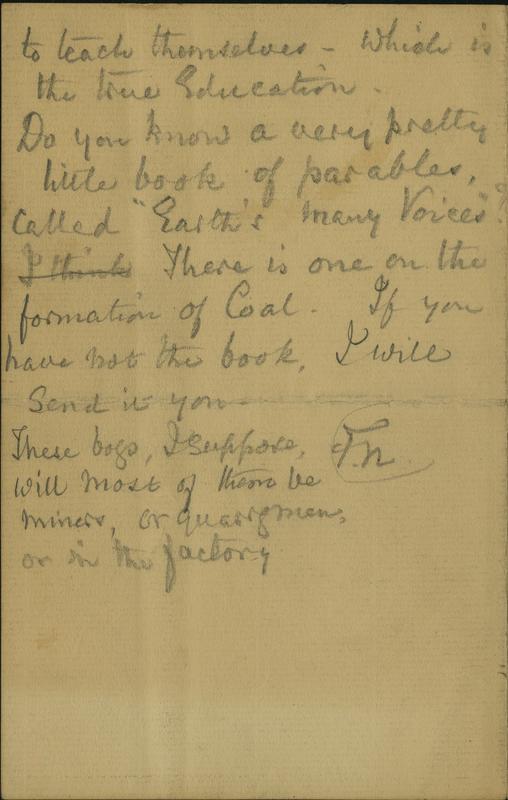 to teach themselves - which is
the true Education.
Do you know a very pretty
little book of parables,
called "Earth's many Voices"?
I think There is one on the
formation of Coal. If you
have not the book, I will
Send it you
These boys, I suppose,
will most of them be
miners, or quarrymen,
or in the factory
F.N.